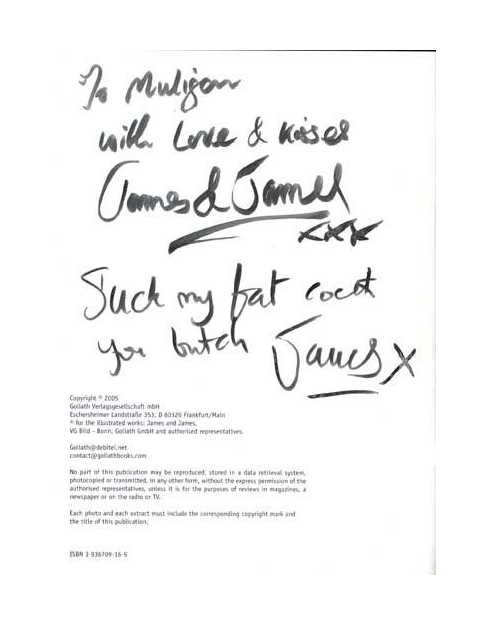 To Muligan
with Love & kisses
James & James
xxx
Suck my fat cock
you bitch James x
Copyright © 2005
Goliath Verlagsgesellschaft mbH
Eschersheimer Landstraße 353, D 60320 Frankfurt/Main
© for the illustrated works: James and James,
VG Bild - Bonn, Goliath GmbH and authorised representatives.
Goliath@debitel.net
contact@goliathbooks.com
No part of this publication may be reproduced, stored in a data retrieval system,
photocopied or transmitted, in any other form, without the express permission of the
authorised representatives, unless it is for the purposes of reviews in magazines, a
newspaper or on the radio or TV.
Each photo and each extract must include the corresponding copyright mark and
the title of this publication.
ISBN 3-936709-16-5